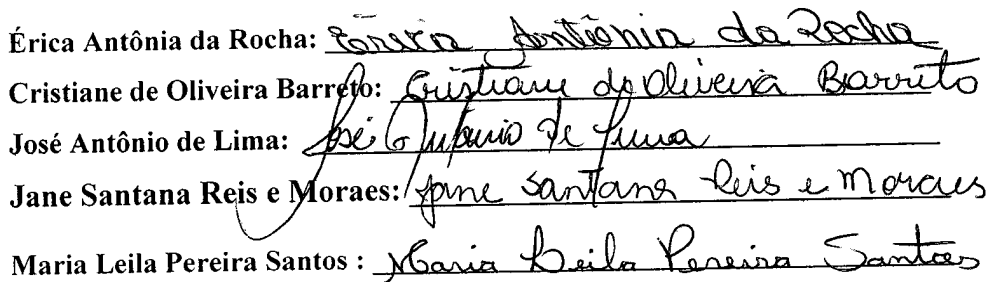 Érica Antônia da Rocha: Érica Antônia da Rocha
Cristiane de Oliveira Barreto: Cristiane de Oliveira Barreto
José Antônio de Lima: José Antônio de Lima
Jane Santana Reis e Moraes: Jane Santana Reis e Moraes
Maria Leila Pereira Santos : Maria Leila Pereira Santos